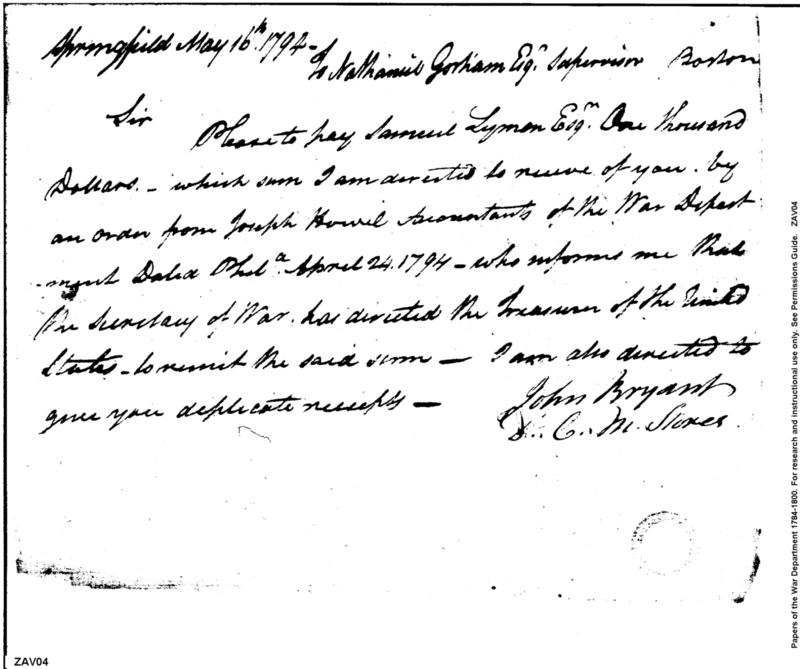 Springfield May 16th. 1794 -
To Nathaniel Gorham Esqr. Supervisor Boston
Sir
Please to pay Samuel Lyman Esqr. One Thousand
Dollars. - which sum I am directed to receive of you. by
an order from Joseph Howel Accountants of the War Depart
-ment Dated Phila. April 24. 1794 - who informs me that
the Secretary of War. has directed the Treasurer of the United
States - to remit the said sum — I am also directed to
give you deplicate receipts —
John Bryant
D.. C.. M. Stores.
ZAV04
Papers of the War Department 1784-1800. For research and instructional use only. See Permissions Guide. ZAV04